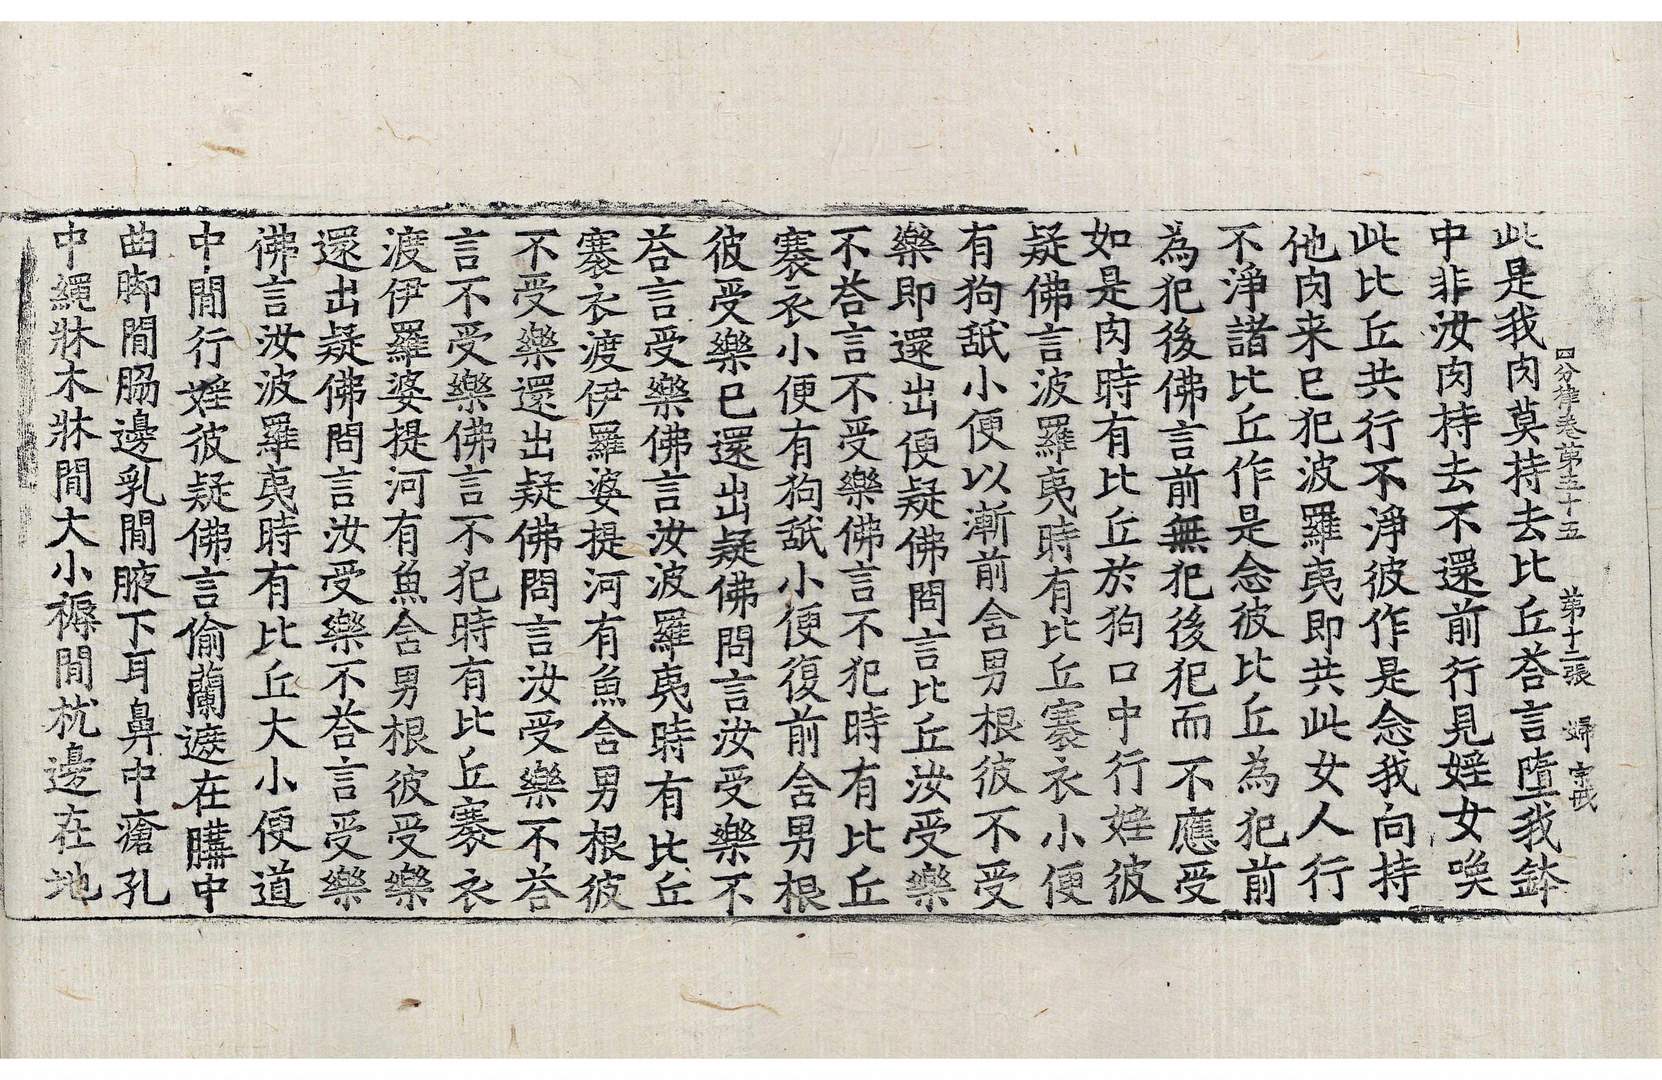 四分律卷第五十五 第十二張 婦 宗戒
此是我肉莫持去比丘荅言墮我鉢
中非汝肉持去不還前行見婬女喚
此比丘共行不淨彼作是念我向持
他肉来已犯波羅夷即共此女人行
不淨諸比丘作是念彼比丘為犯前
為犯後佛言前無犯後犯而不應受
如是肉時有比丘於狗口中行婬彼
疑佛言波羅夷時有比丘褰衣小便
有狗舐小便以漸前含男根彼不受
樂即還出便疑佛問言比丘汝受樂
不荅言不受樂佛言不犯時有比丘
褰衣小便有狗舐小便復前含男根
彼受樂已還出疑佛問言汝受樂不
荅言受樂佛言汝波羅夷時有比丘
褰衣渡伊羅婆提河有魚含男根彼
不受樂還出疑佛問言汝受樂不荅
言不受樂佛言不犯時有比丘褰衣
渡伊羅婆提河有魚含男根彼受樂
還出疑佛問言汝受樂不荅言受樂
佛言汝波羅夷時有比丘大小便道
中間行婬彼疑佛言偷蘭遮在𨄔中
曲脚間脇邊乳間腋下耳鼻中瘡孔
中繩牀木牀間大小褥間枕邊在地